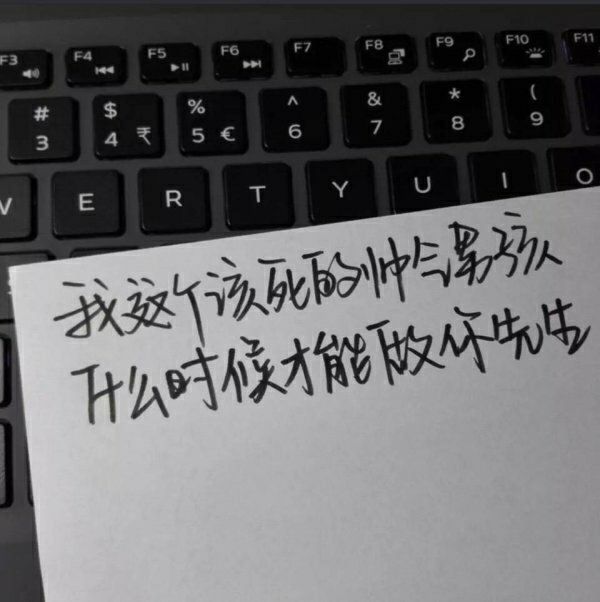 F3 F4 F5 F6 F7 F8 F9 F10 F11
# $ % ^ & * (
3 4 ₹ 5 € 6 7 8 9
E R T Y U I O
我这个该死的帅气男孩
什么时候才能做你先生